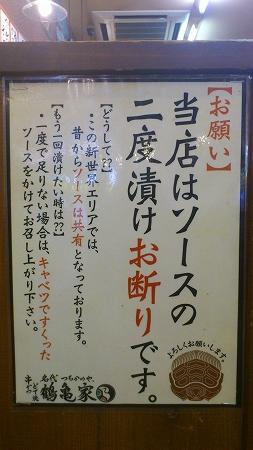 【お願い】
当店はソースの
二度漬けお断りです。
【どうして??】
・この新世界エリアでは、
昔からソースは共有となっております。
【もう一回漬けたい時は??】
・一度で足りない場合は、キャベツですくった
ソースをかけてお召し上がり下さい。
よろしくお願いします。
串かつ どて焼
名代 つるかめや
鶴亀家